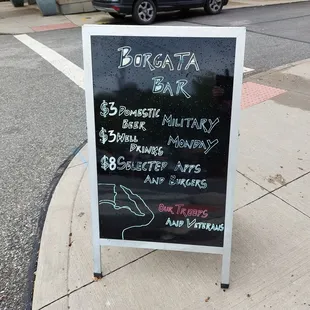 BORGATA
BAR
$3 DOMESTIC BEER MILITARY
$3 WELL DRINKS MONDAY
$8 SELECTED APPS
AND BURGERS
OUR TROOPS
AND VETERANS